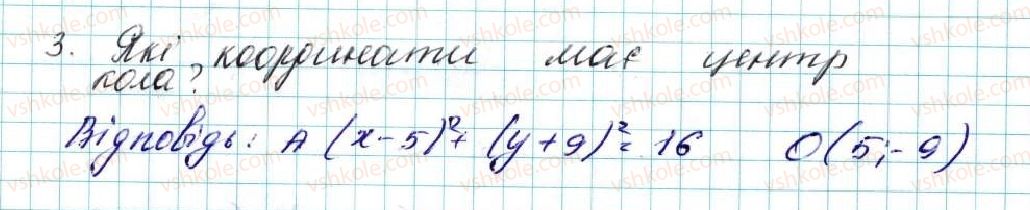 3. Які координати має центр
кола?
Відповідь: А (x-5)²+ (y+9)²= 16 О(5;-9)